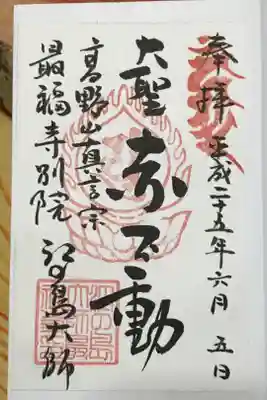 奉拝 平成二十五年六月五日
大聖赤不動
高野山真言宗
最福寺別院 江の島大師